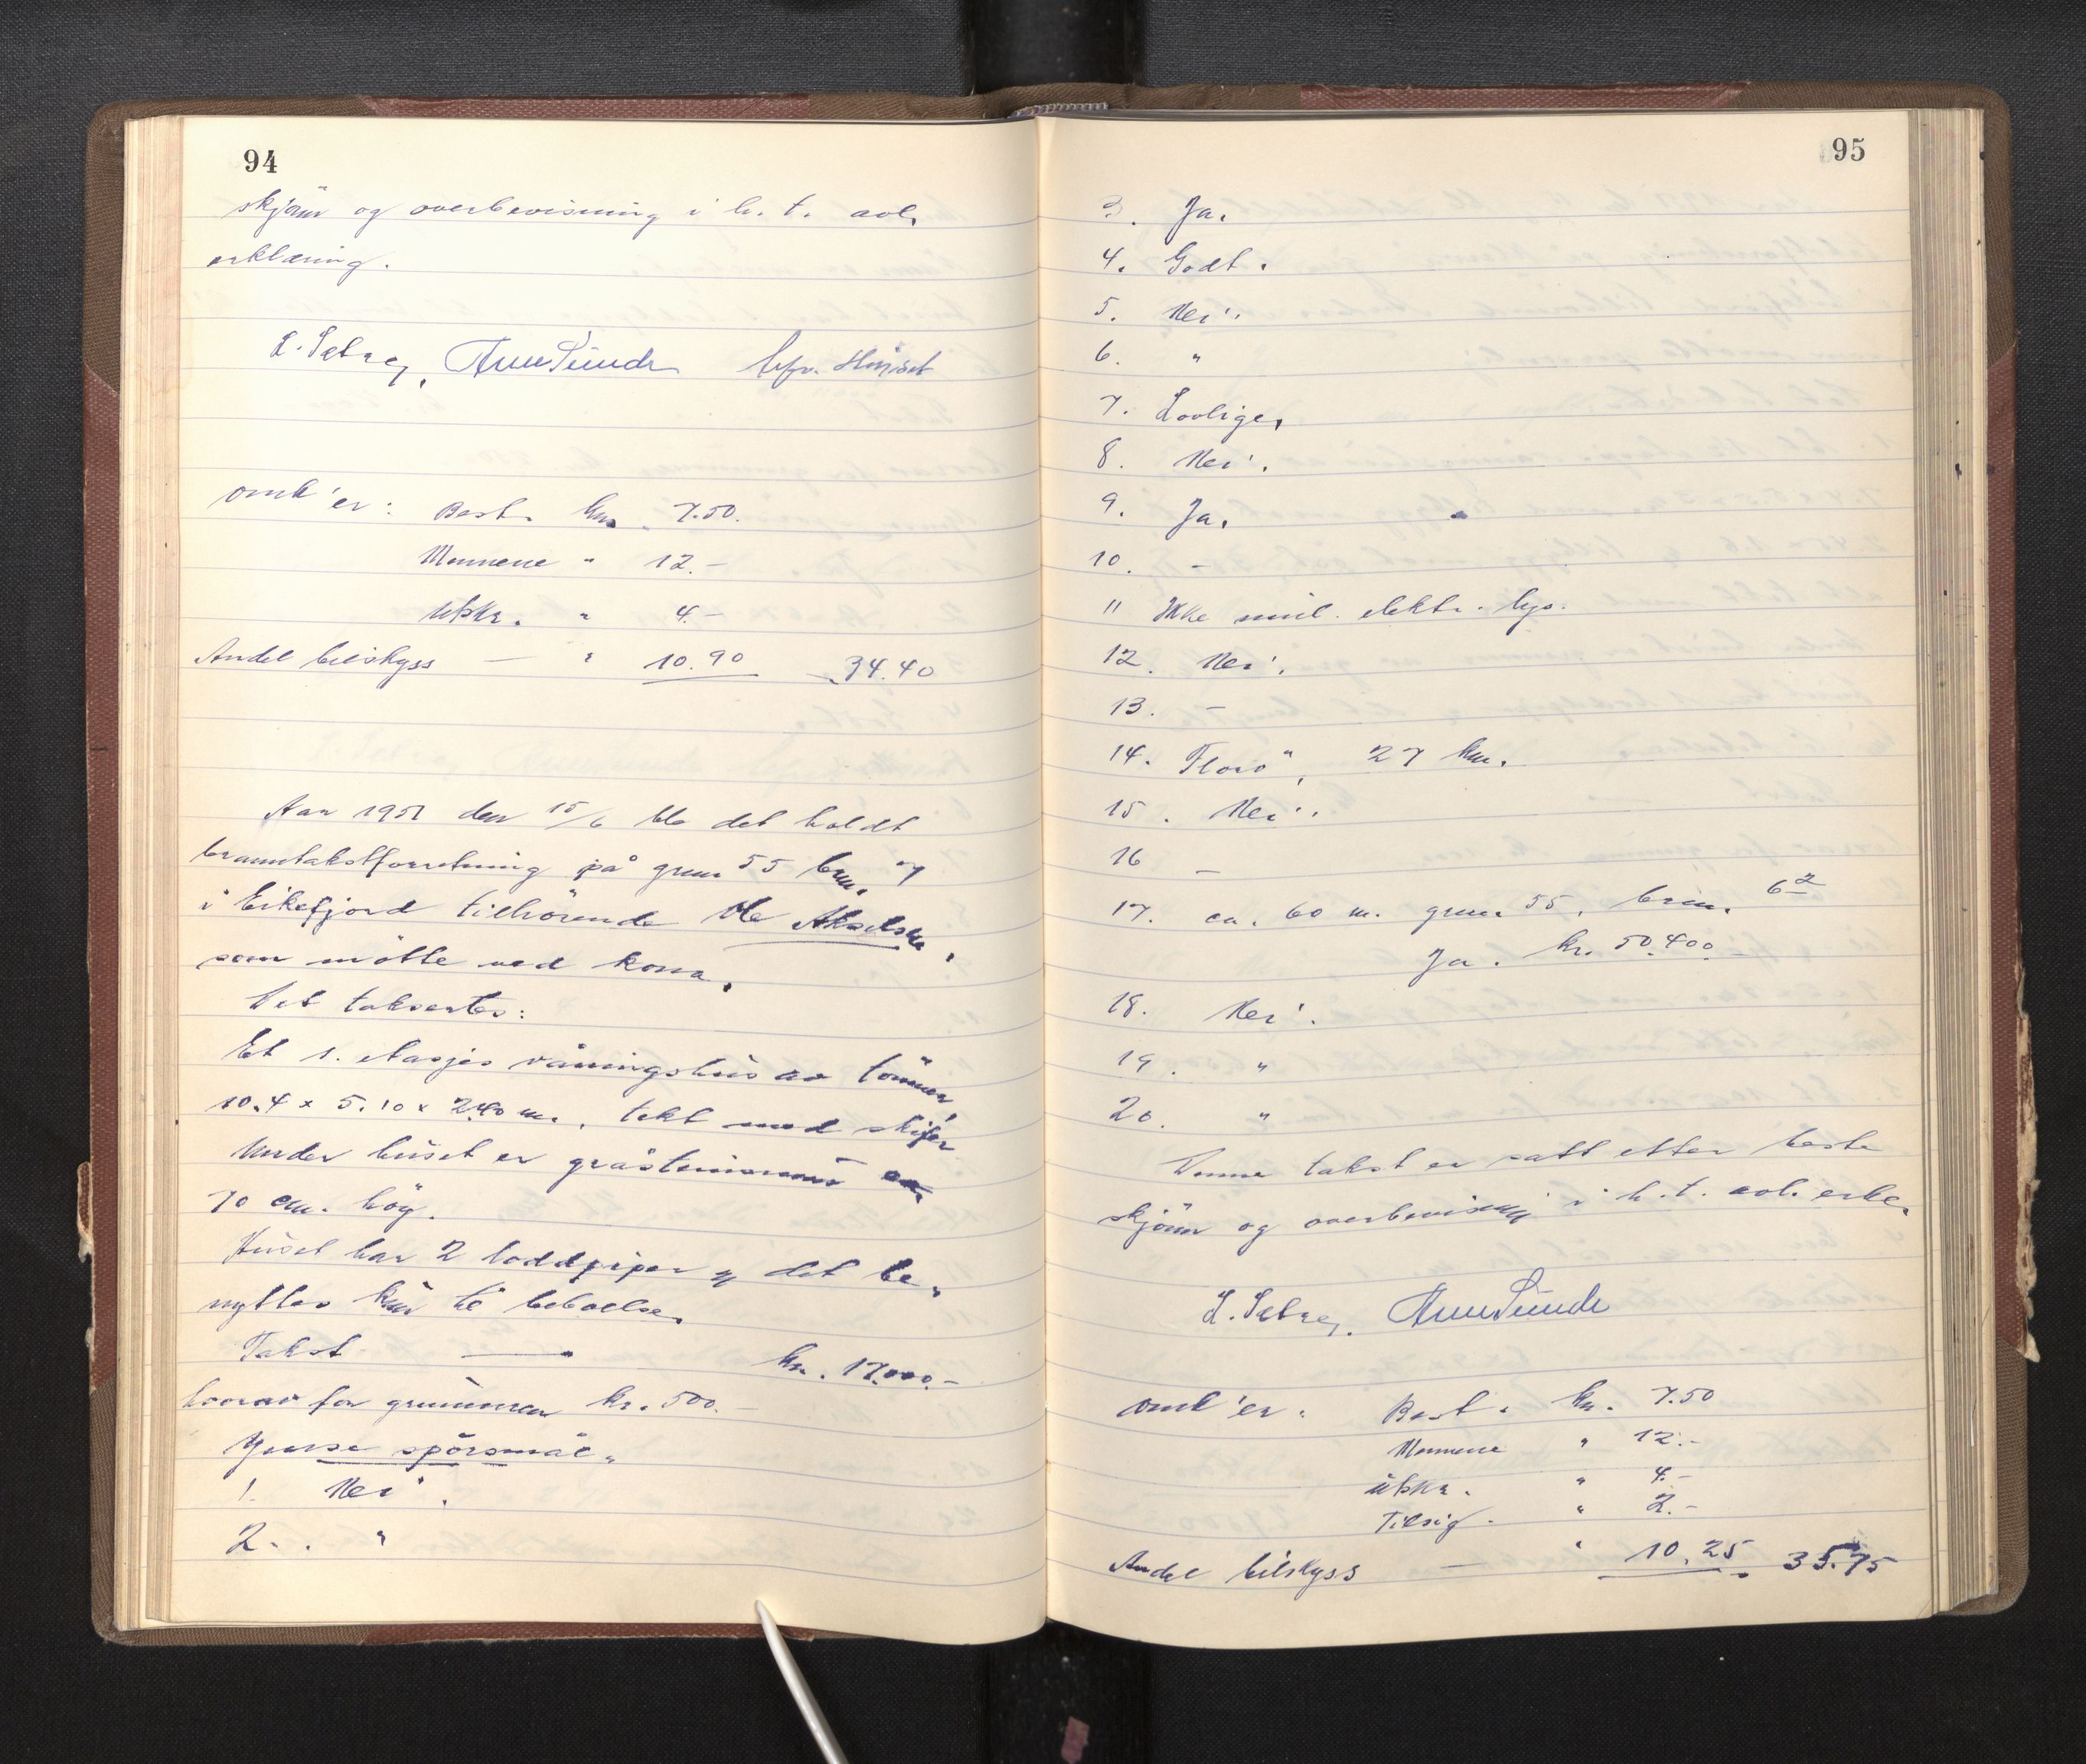 94
skjönn og overbevisning i h. t. avl.
erklæring.
L. Sæbræg, Arne Sunde
omk'er: Best. kr. 7.50.
Mennene " 12.-
Utskr. " 4.-
Andel bilskyss — " 10.90 34.40
Aar 1951 den 15/6 ble det holdt
branntakstforretning på grnr 55 brnr. 7
i Eikefjord tilhörende Ole Akselsen,
som mötte ved kona.
Det taksertes:
Et 1. etasjes våningshus av tömmer
10.4 x 5.10 x 2.40 m., tekt med skifer
Under huset er gråsteinsmur
70 cm. höy.
Huset har 2 loddpiper og det be-
nyttes kun til beboelse.
Takst — kr. 17.000.-
hvorav for grunnmuren kr. 500.-
Yvrse spörsmål.
1. Nei.
2. . "
95
3. Ja.
4. Godt.
5. Nei.
6. "
7. Lovlige.
8. Nei.
9. Ja.
10. -
11 Ikke innl. elektr. lys.
12. Nei.
13. -
14. Florö, 27 km.
15. Nei.
16 -
17. ca. 60 m. grnr. 55, brnr. 62
Ja. kr. 50.400.-
18. Nei.
19. "
20. "
Denne takst er satt etter beste
skjönn og overbevisning i h.t. avl. erkl.
L. Sæbræg, Arne Sunde
omk'er: Best. kr. 7.50
Mennene " 12.-
Utskr. " 4.-
Tilsig. " 2.-
Andel bilskyss — " 10.25 35.75